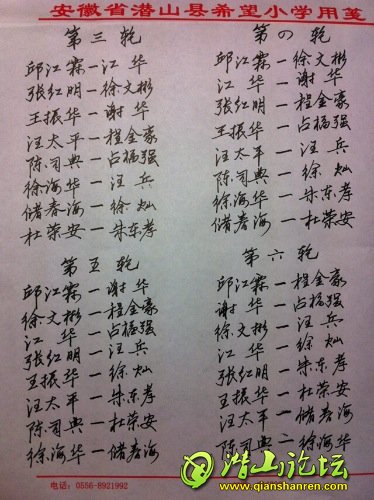 安徽省潜山县希望小学用笺
第三轮
邱江霖—江华
张红明—徐文彬
王振华—谢华
汪太平—程金豪
陈司典—占福强
徐海华—汪兵
储春海—徐灿
杜荣安—朱东孝
第四轮
邱江霖—徐文彬
江华—谢华
张红明—程金豪
王振华—占福强
汪太平—汪兵
陈司典—徐灿
徐海华—朱东孝
储春海—杜荣安
第五轮
邱江霖—谢华
徐文彬—程金豪
江华—占福强
张红明—汪兵
王振华—徐灿
汪太平—朱东孝
陈司典—杜荣安
徐海华—储春海
第六轮
邱江霖—程金豪
谢华—占福强
徐文彬—汪兵
江华—徐灿
张红明—朱东孝
王振华—杜荣安
汪太平—储春海
陈司典—徐海华
电话：0556-8921992
潜山论坛
www.qianshanren.com